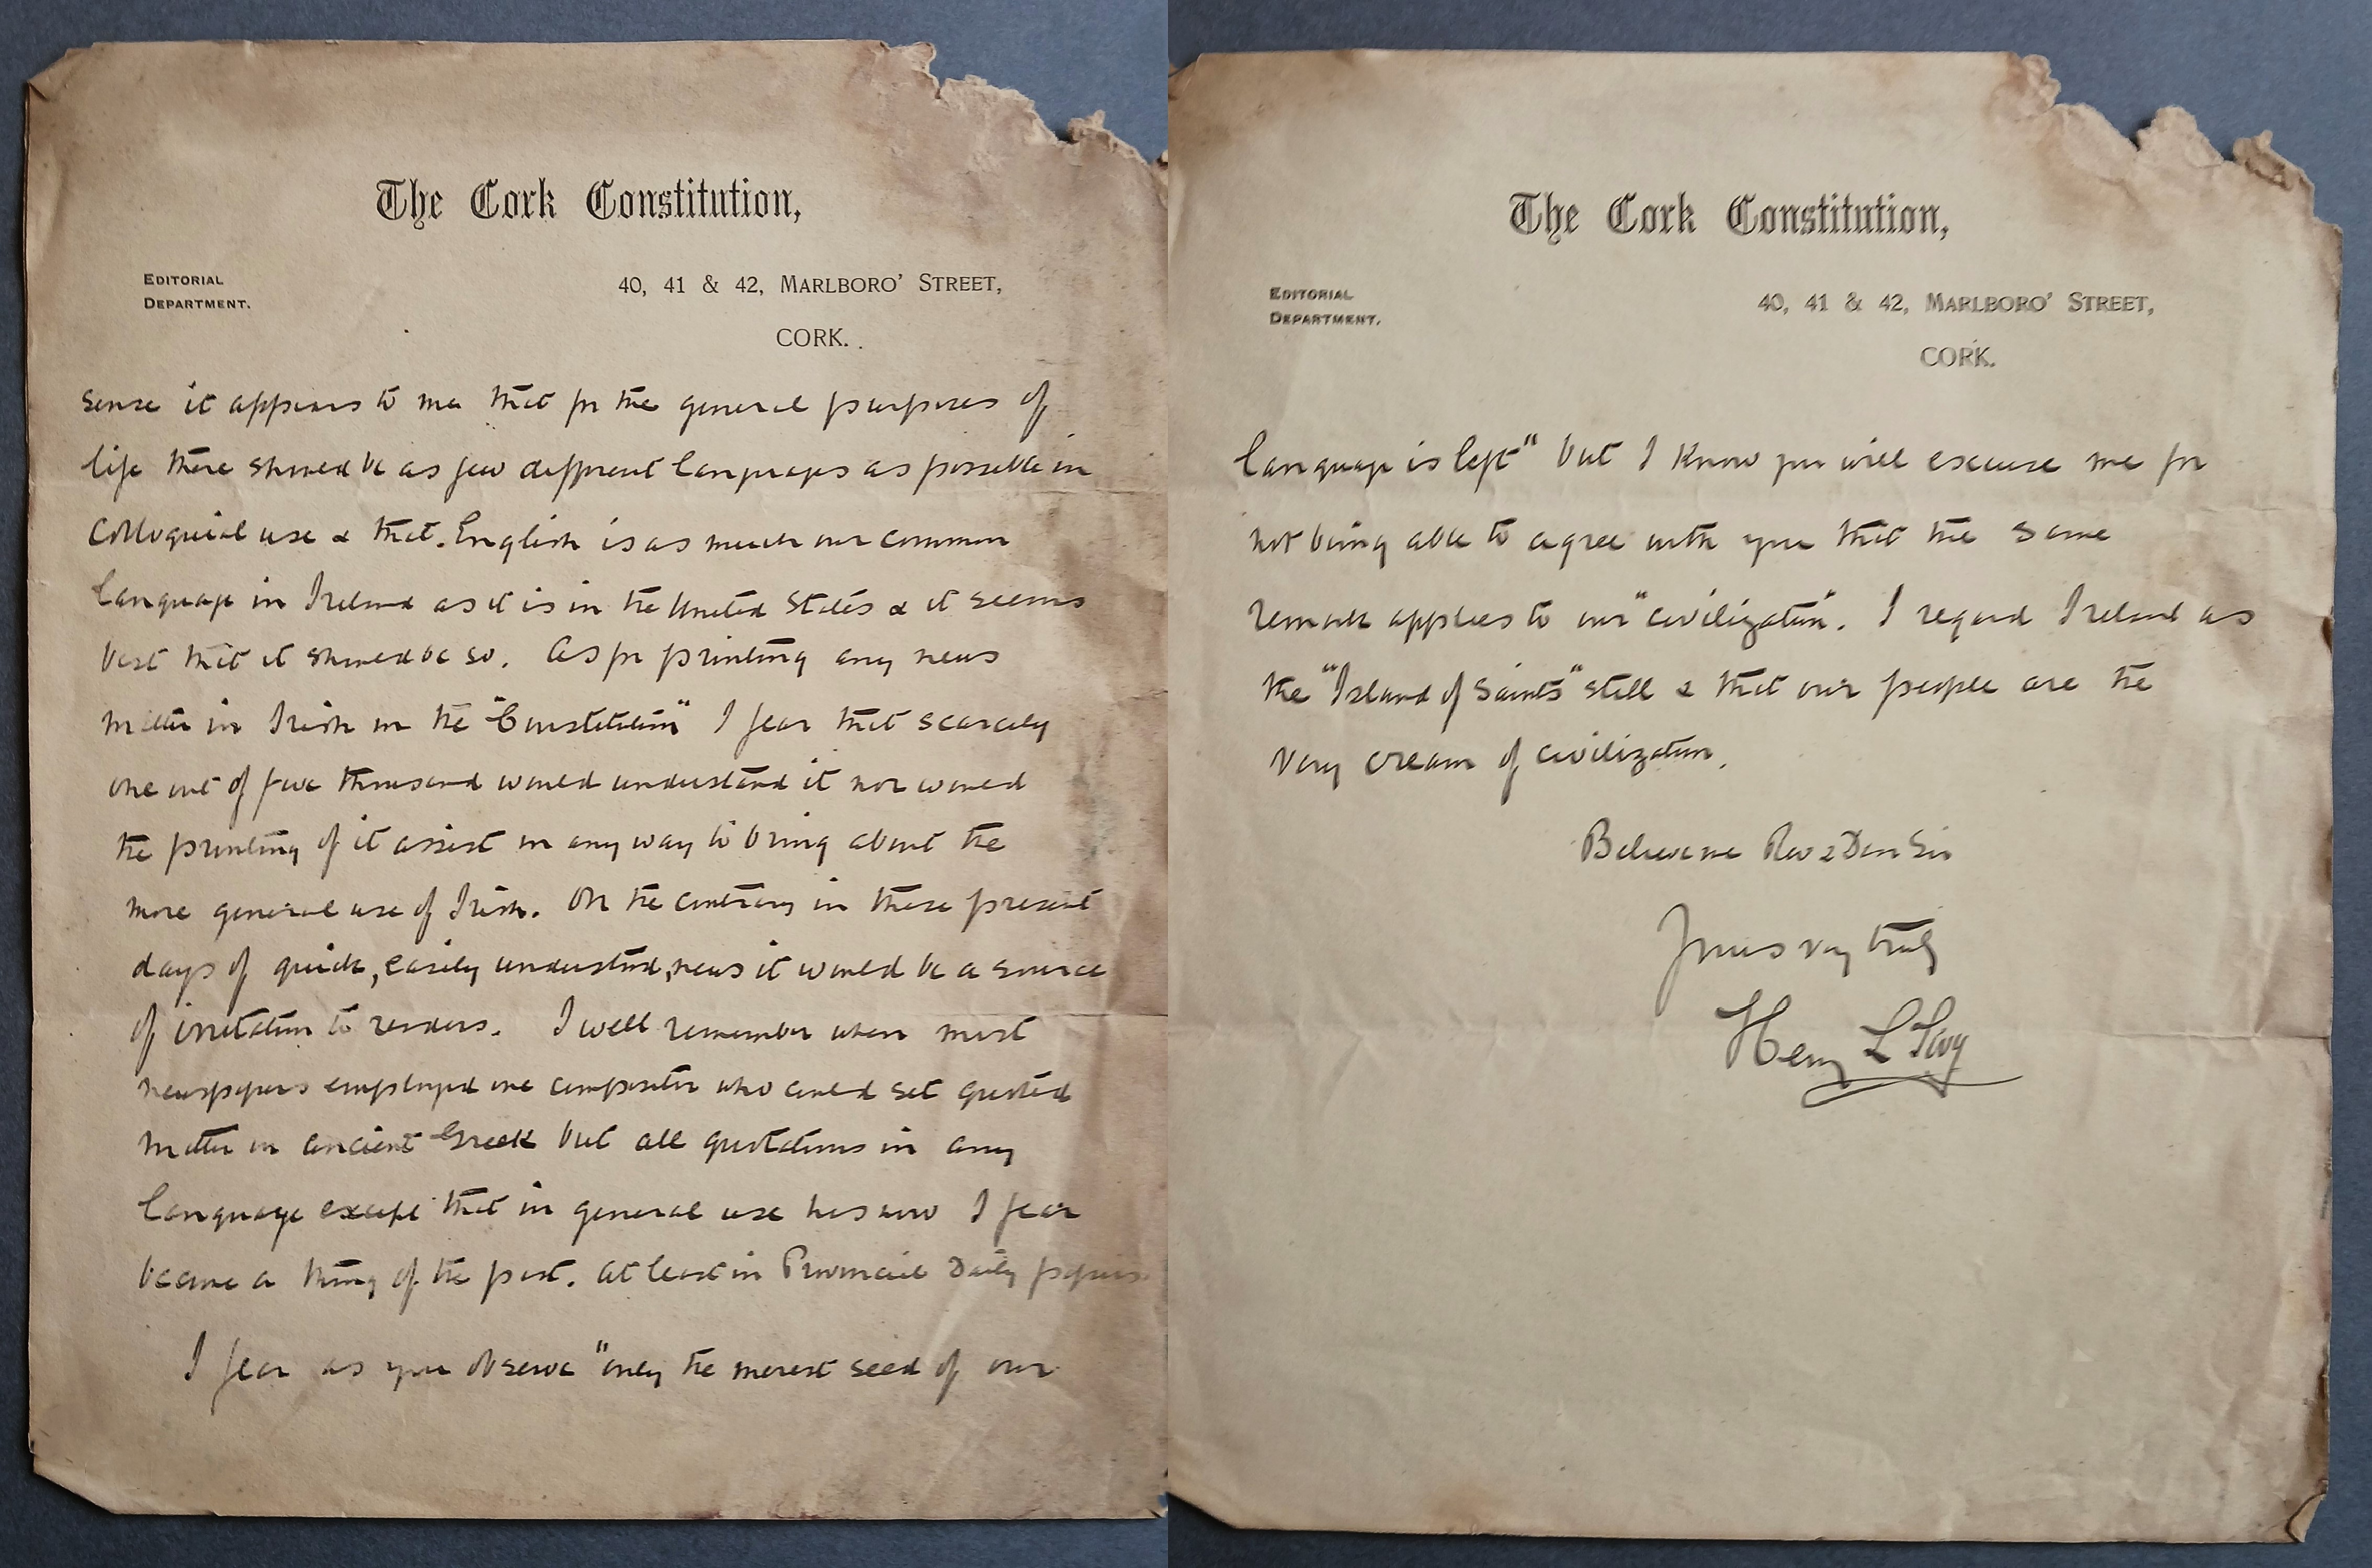 The Cork Constitution,
EDITORIAL
DEPARTMENT.
40, 41 & 42, MARLBORO' STREET,
CORK.
sense it appears to me that for the general purposes of
life there should be as few different languages as possible in
colloquial use & that English is as much our common
language in Ireland as it is in the United States & it seems
best that it should be so. As for printing any news
matter in Irish in the "Constitution" I fear that scarcely
one out of five thousand would understand it nor would
the printing of it assist in any way to bring about the
more general use of Irish. On the contrary in these present
days of quick, easily understood, news it would be a source
of irritation to readers. I well remember when most
newspapers employed one compositor who could set quoted
matter in ancient Greek but all quotations in any
language except that in general use has now I fear
become a thing of the past. At least in Provincial Daily papers.
I fear as you observe "only the merest seed of our
The Cork Constitution,
EDITORIAL
DEPARTMENT.
40, 41 & 42, MARLBORO' STREET,
CORK.
language is left" but I know you will excuse me for
not being able to agree with you that the same
remark applies to our "civilization". I regard Ireland as
the "Island of Saints" still & that our people are the
very cream of civilization.
Believe me Rev & Dear Sir
Yours very truly
Henry L